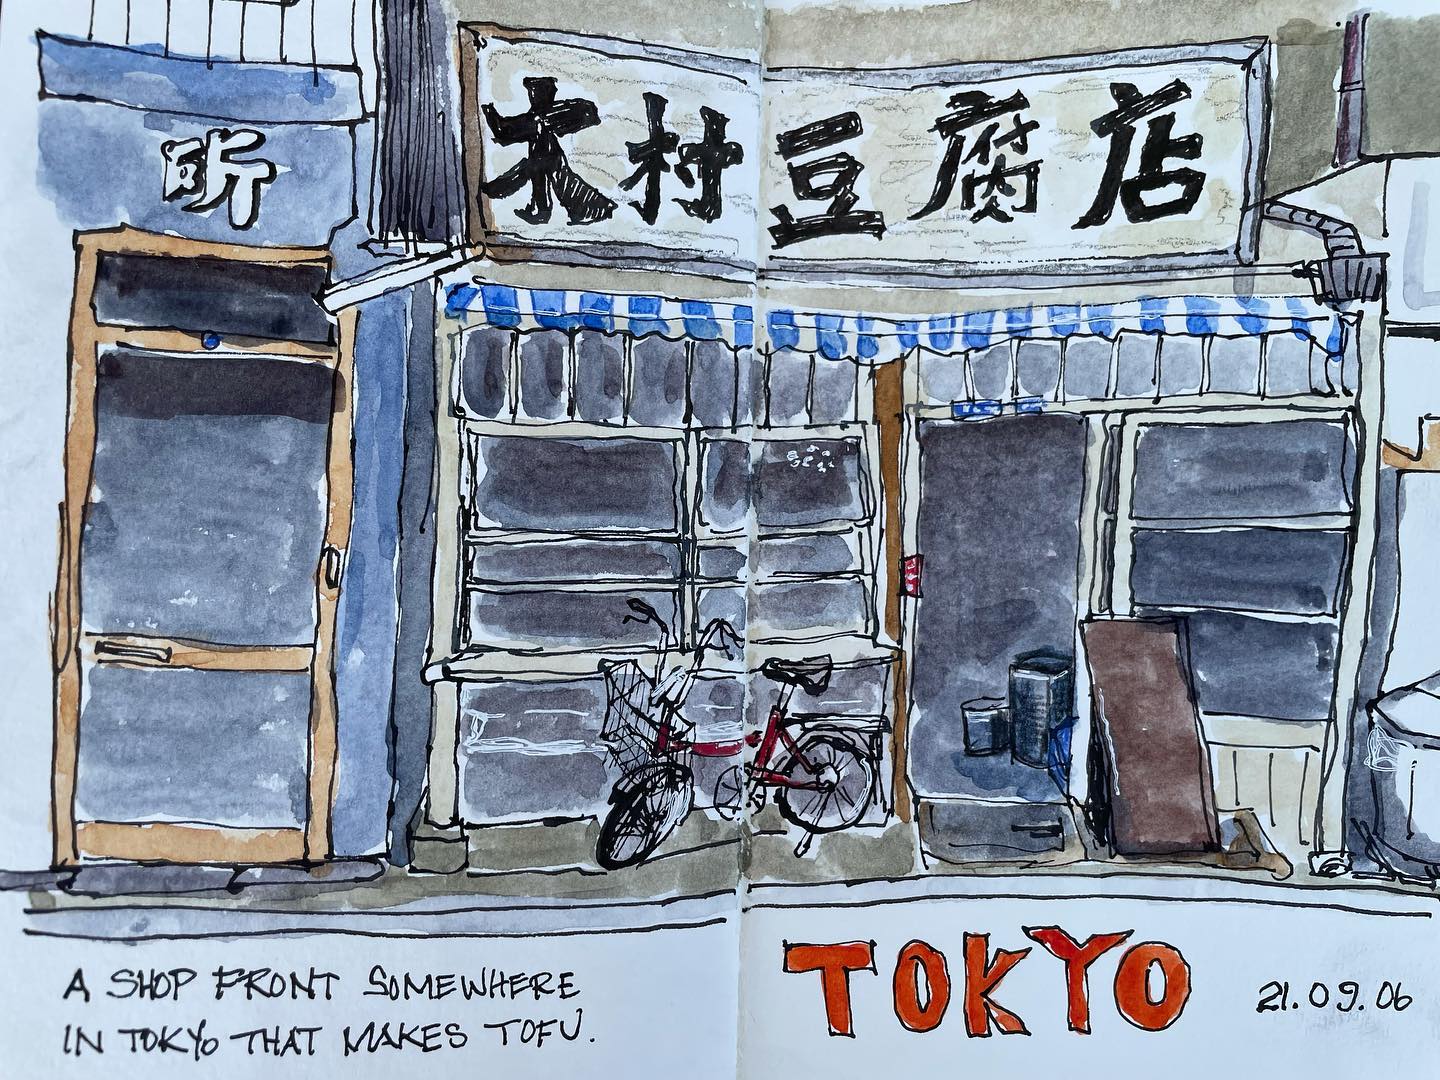 所
木村豆腐店
A SHOP FRONT SOMEWHERE
IN TOKYO THAT MAKES TOFU.
TOKYO
21.09.06